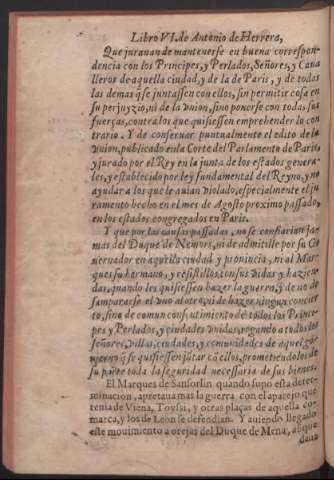 Libro VI. de Antonio de Herrera,
Que jurauan de mantenerse en buena correspon-
dencia con los Principes, y Perlados, Señores, y Caua
lleros de aquella ciudad, y de la de Paris, y de todas
las demas q̃ se juntassen con ellos, sin permitir cosa en
su perjuyzio, ni de la vnion, sino ponerse con todas sus
fuerças, contra los que quisiessen emprehender lo con
trario. Y de conseruar puntualmente el edito de la
vnion, publicado en la Corte del Parlamento de Paris,
y jurado por el Rey en la junta de los estados genera-
les, y establecido por ley fundamental del Reyno, y no
ayudar a los que le auian violado, especialmente el ju
ramento hecho en el mes de Agosto proximo passado,
en los estados congregados en Paris.
Y que por las causas passadas, no se confiarian ja
mas del Duque de Nemurs, ni de admitille por su Go
uernador en aquella ciudad y prouincia, ni al Mar-
ques su hermano, y resistillos con sus vidas y hazien-
das, quando les quisiessen hazer la guerra, y de no de
sampararse el vno al otro, ni de hazer ningun concier
to, sino de comun consentimiento de todos los Princi-
pes y Perlados, y ciudades vnidas, rogando a todos los
señores, villas, ciudades, y comunidades de aquel go-
uierno q̃ se quisiessen jũtar cõ ellos, prometiendolos de
su parte toda la seguridad necessaria de sus bienes.
El Marques de Sansorlin quando supo esta deter-
minacion, apretaua mas la guerra con el aparejo que
tenia de Viena, Toysai, y otras plaças de aquella co-
marca, y los de Leon se defendian. Y auiendo llegado
este mouimiento a orejas del Duque de Mena,